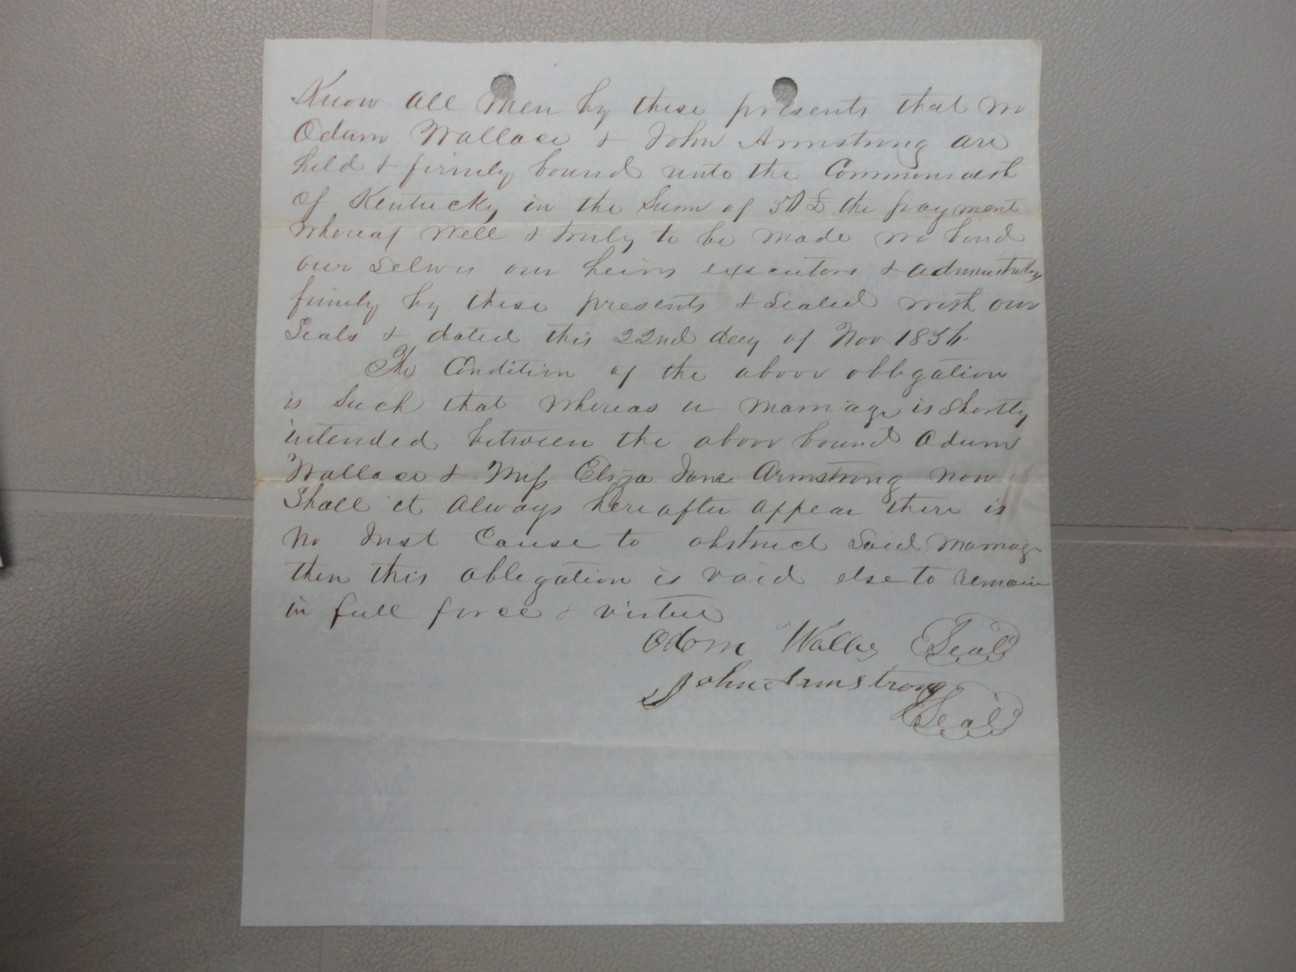 Know all men by these presents that we
Odam Wallace & John Armstrong are
held & firmly bound unto the Commonwealth
of Kentucky in the Sum of 50£ the payment
whereof well & truly to be made we bind
our Selves our heirs executors & administrators
firmly by these presents & Sealed with our
Seals & dated this 22nd day of Nov
The Condition of the above obligation
is Such that whereas a marriage is Shortly
intended between the above bound Odam
Wallace & Miss Eliza Jane Armstrong now
Shall it always hereafter appear there is
no Just Cause to obstruct Said marriage
then this obligation is void else to remain
in full force & virtue
Odom Wallis Seal
John Armstrong
Seal